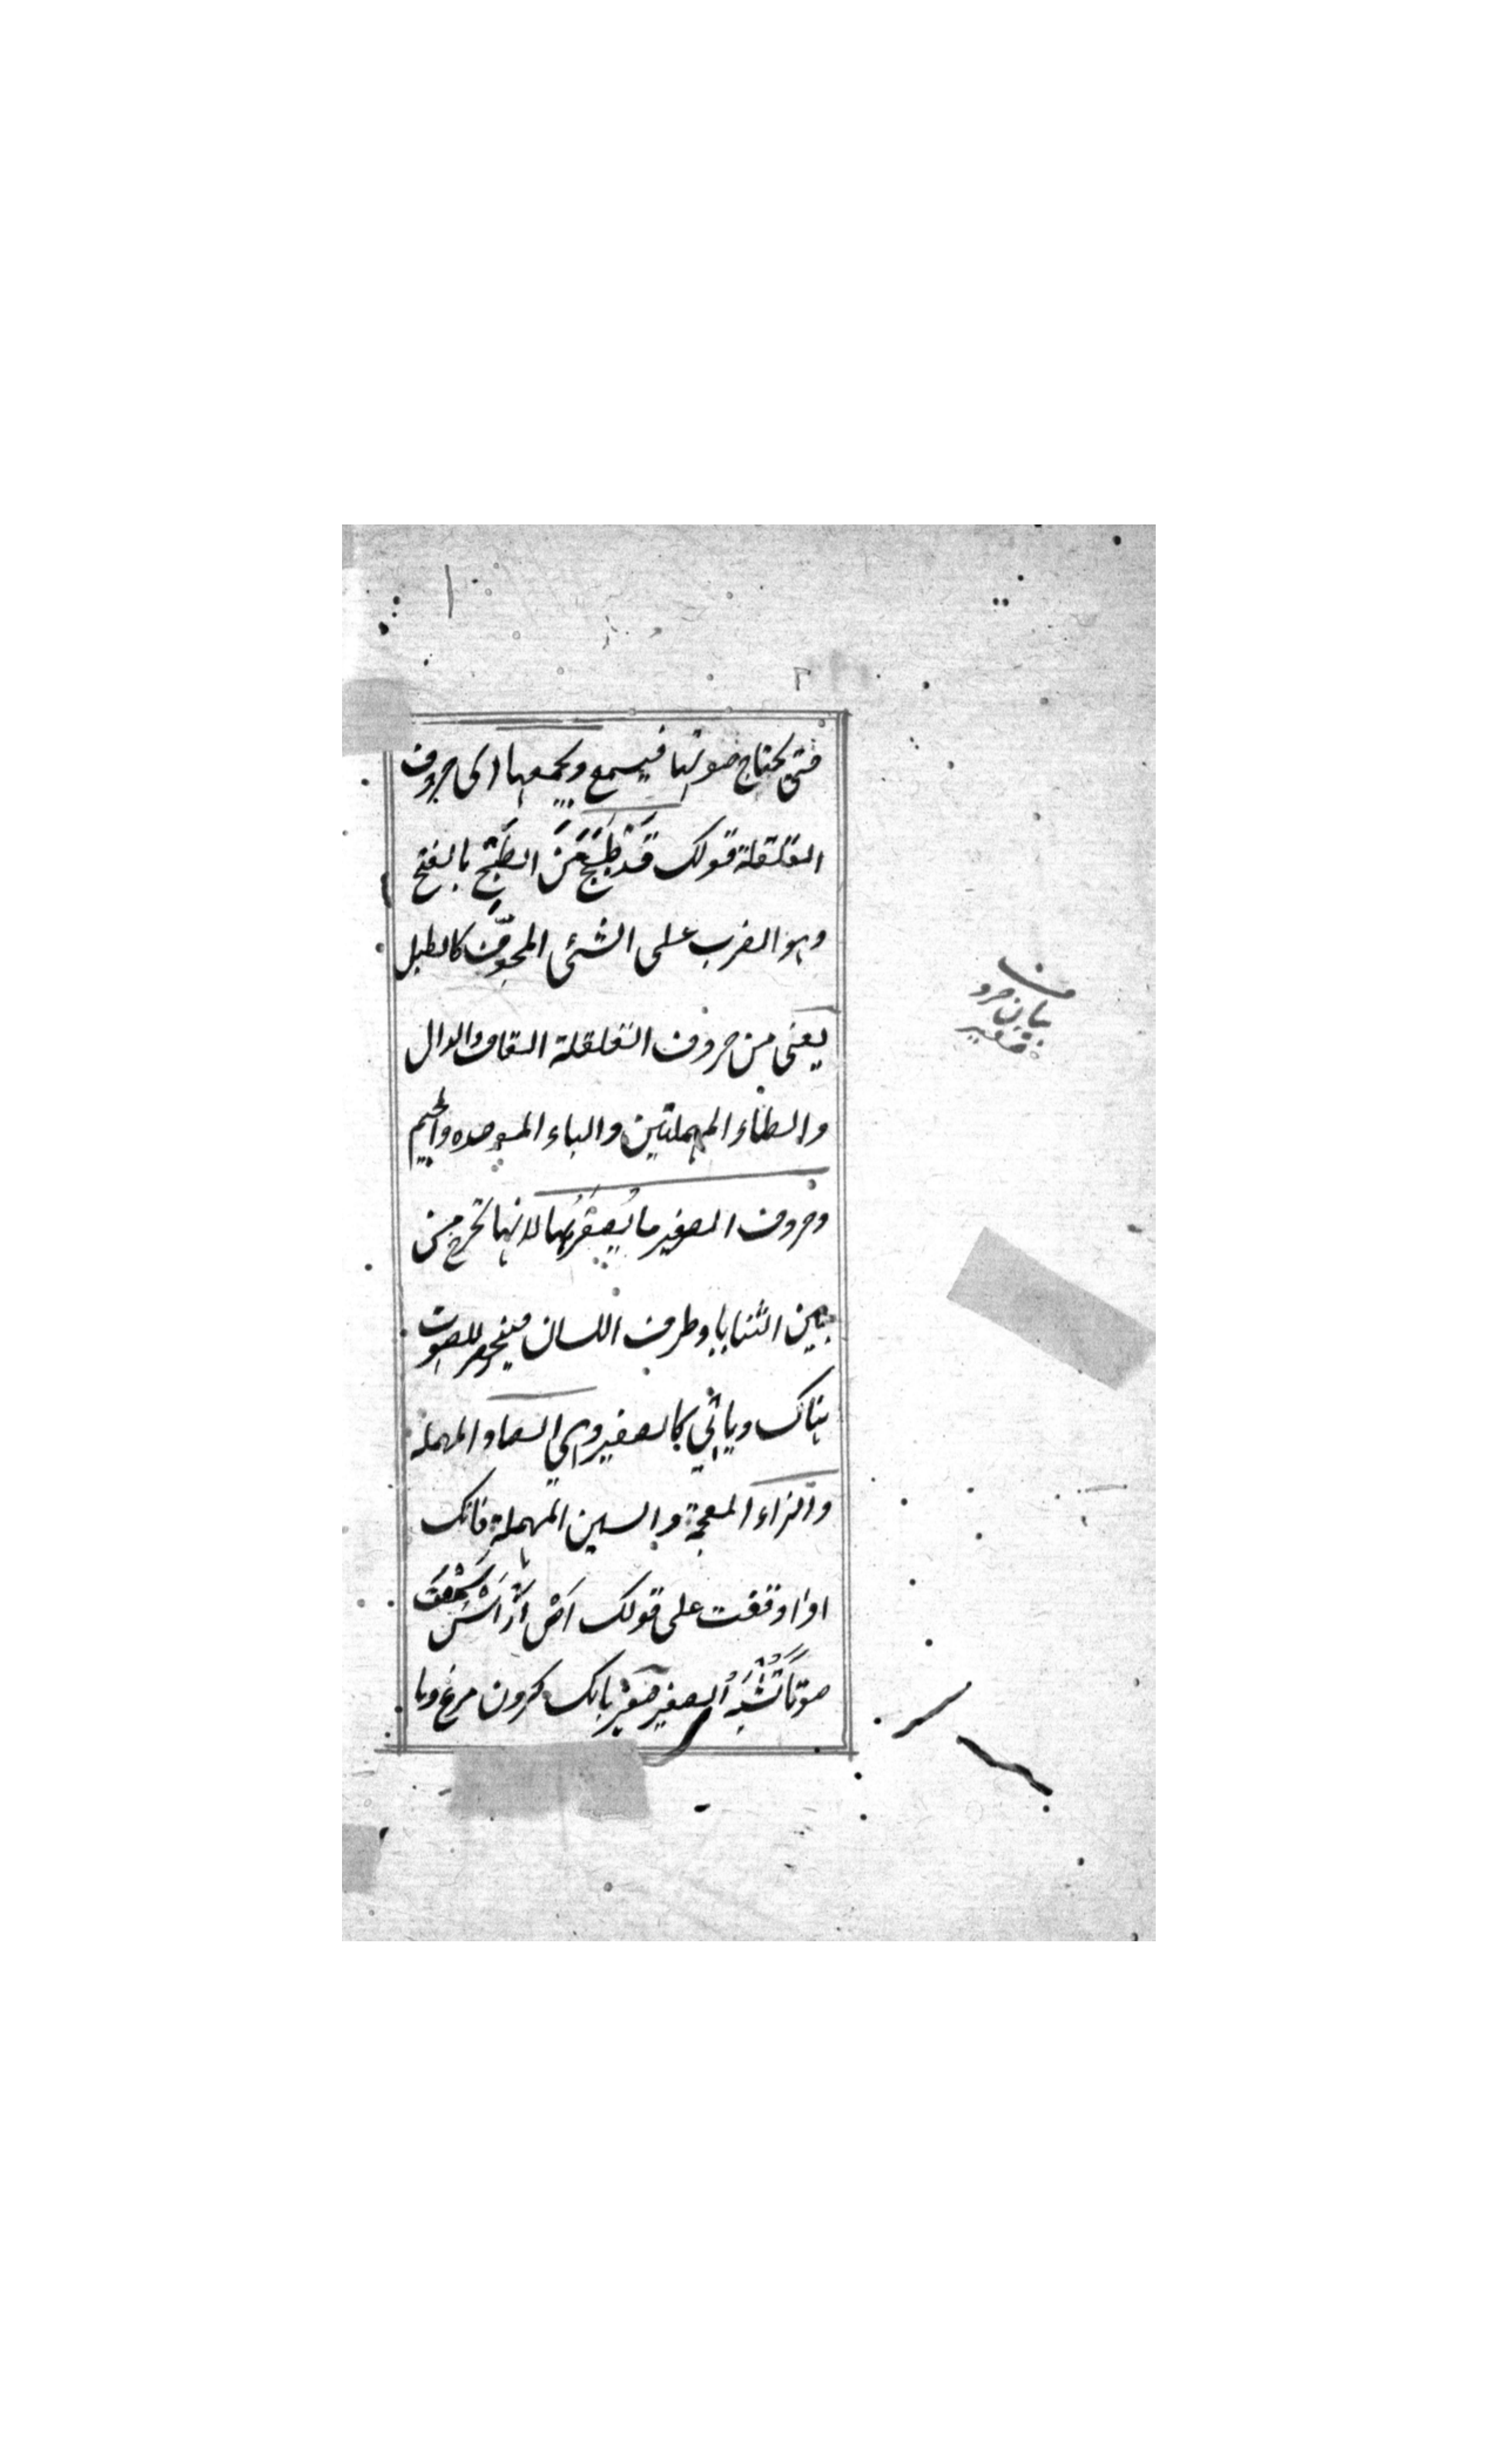 حتى يحتاج صوتها فيسمع ويجمعها اى حروف
القلقلة قولك قَدْ طَبَجَ مَنَ الطَّبْجِ بالفتح
وهو الضرب على الشئى المجوّف كالطبل
يعنى من حروف القلقلة القاف والدال
والطاء المهملتين والباء الموحده والجيم
وحروف الصفير ما يُصْفَرُ بها لانها تخرج من
بين الثنايا وطرف اللسان فينحصر الصوت
هناك وياتي كالصفير وهي الصاد المهمله
والزاء المعجمة والسين المهملة فانك
اذا وقفت على قولك اَصْ اَزْ اَسْ سَمِعْتَ
صوتًا يُشْبِهُ الصفير صفير بانك كردن مرغ وبا
بيان حروف
صفير